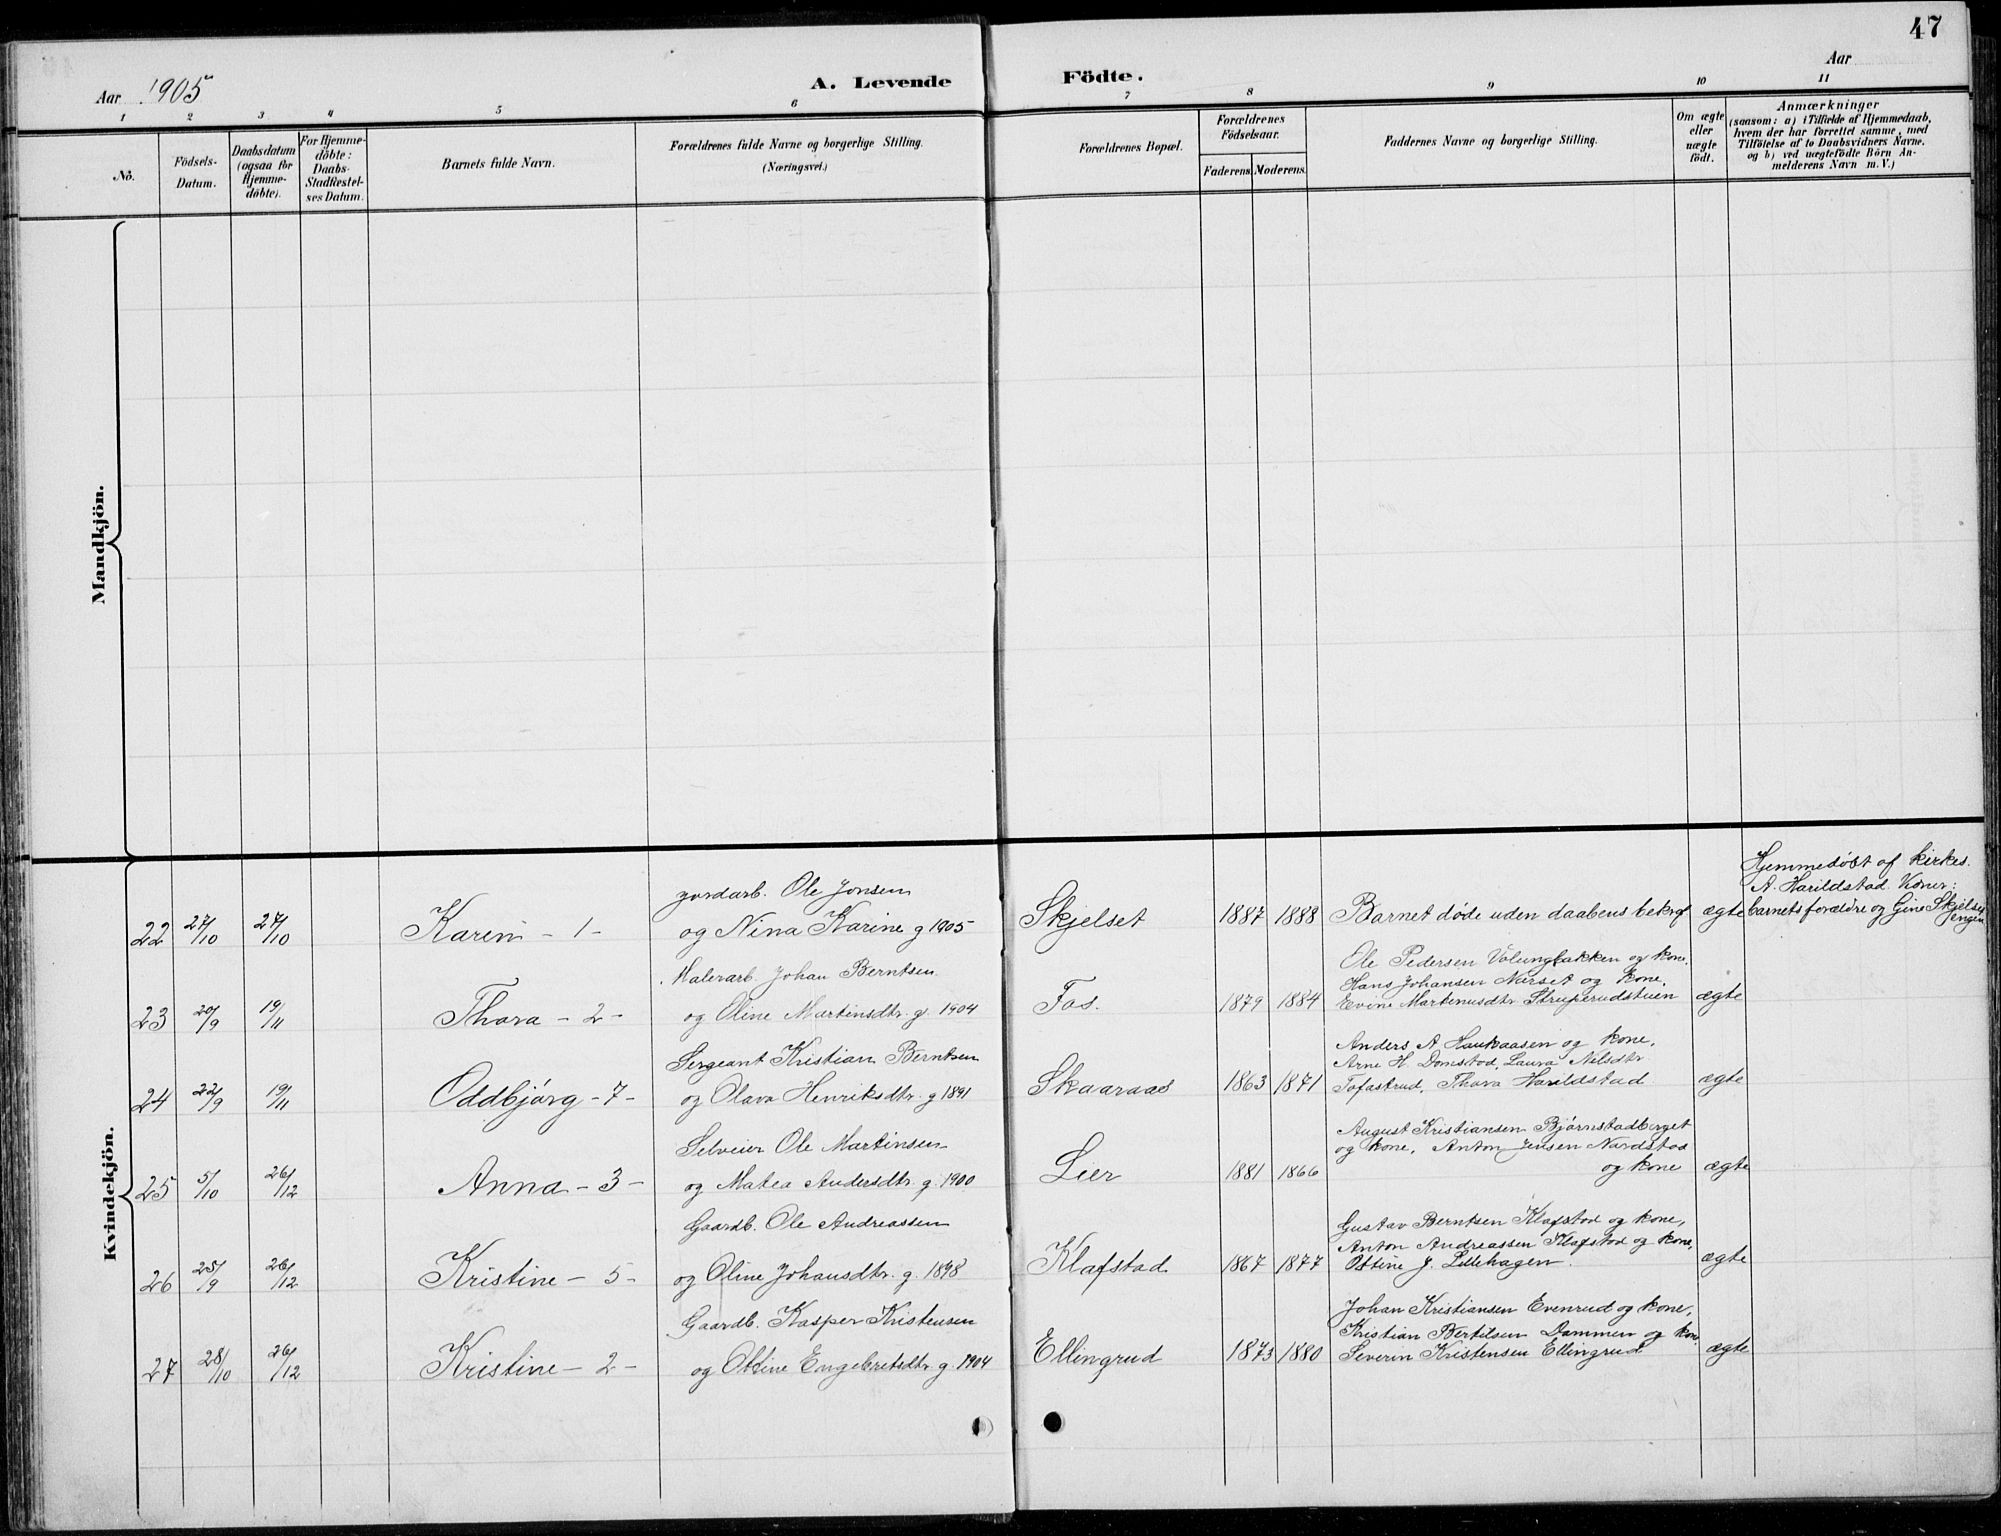 47
Aar 1905
A. Levende Födte.
Aar
1 2 3 4 5 6 7 8 9 10 11
No.
Födsels-Datum.
Daabsdatum (ogsaa for Hjemme-döbte).
For Hjemme-döbte: Daabs-Stadfestel-ses Datum.
Barnets fulde Navn.
Forældrenes fulde Navne og borgerlige Stilling. (Næringsvei.)
Forældrenes Bopæl.
Forældrenes Födselsaar.
Faderens. Moderens.
Faddernes Navne og borgerlige Stilling.
Om ægte eller uægte födt.
Anmærkninger
(saasom: a) i Tilfælde af Hjemmedaab,
hvem der har forrettet samme, med
Tilföielse af to Daabsvidners Navne.
og b) ved uægtefödte Börn An-
melderens Navn m. V.)
Mandkjön.
Kvindekjön.
gordarb. Ole Jonsen
22 27/10 27/10 Karen - 1 - og Nina Karine g 1905 Skjelset 1887 1888 Barnet døde uden daabens bekræf ægte
Hjemmedøbt af kirkes.
A. Harildstad. Vidner:
barnets forældre og Gine Skjelset
engen
Malerarb. Johan Berntsen
23 20/9 19/11 Thora - 2 - og Oline Martinsdtr. g. 1904 Fos. 1879 1884
Ole Pedersen Volungbakken og kone.
Hans Johansen Nerset og kone.
Evine Martinusdtr Struperudstuen ægte
Sergeant Kristian Berntsen
24 22/9 19/11 Oddbjørg - 7 - og Olava Henriksdtr. g 1891 Skaaraas 1863 1871
Anders A. Haukaasen og kone,
Arne H. Domstad, Laura Nilsdtr
Tofastrud, Thora Harildstad ægte
Selveier Ole Martinsen
25 5/10 26/12 Anna - 3 - og Matea Andersdtr. g. 1900 Lier 1881 1866
August Kristiansen Bjørnstadberget
og kone, Anton Jensen Nordstoa
og kone ægte
Gaardb. Ole Andreassen
26 25/9 26/12 Kristine - 5 - og Oline Johansdtr. g. 1898 Klafstad 1867 1877
Gustav Berntsen Klafstad og kone,
Anton Andreassen Klafstad og kone,
Ottine J. Lillehagen. ægte
Gaardb. Kasper Kristensen
27 28/10 26/12 Kristine - 2 - og Ottine Engebretsdtr. g. 1904 Ellingrud 1873 1880
Johan Kristiansen Evenrud og kone,
Kristian Bertilsen Dammen og kone
Severin Kristensen Ellingrud ægte